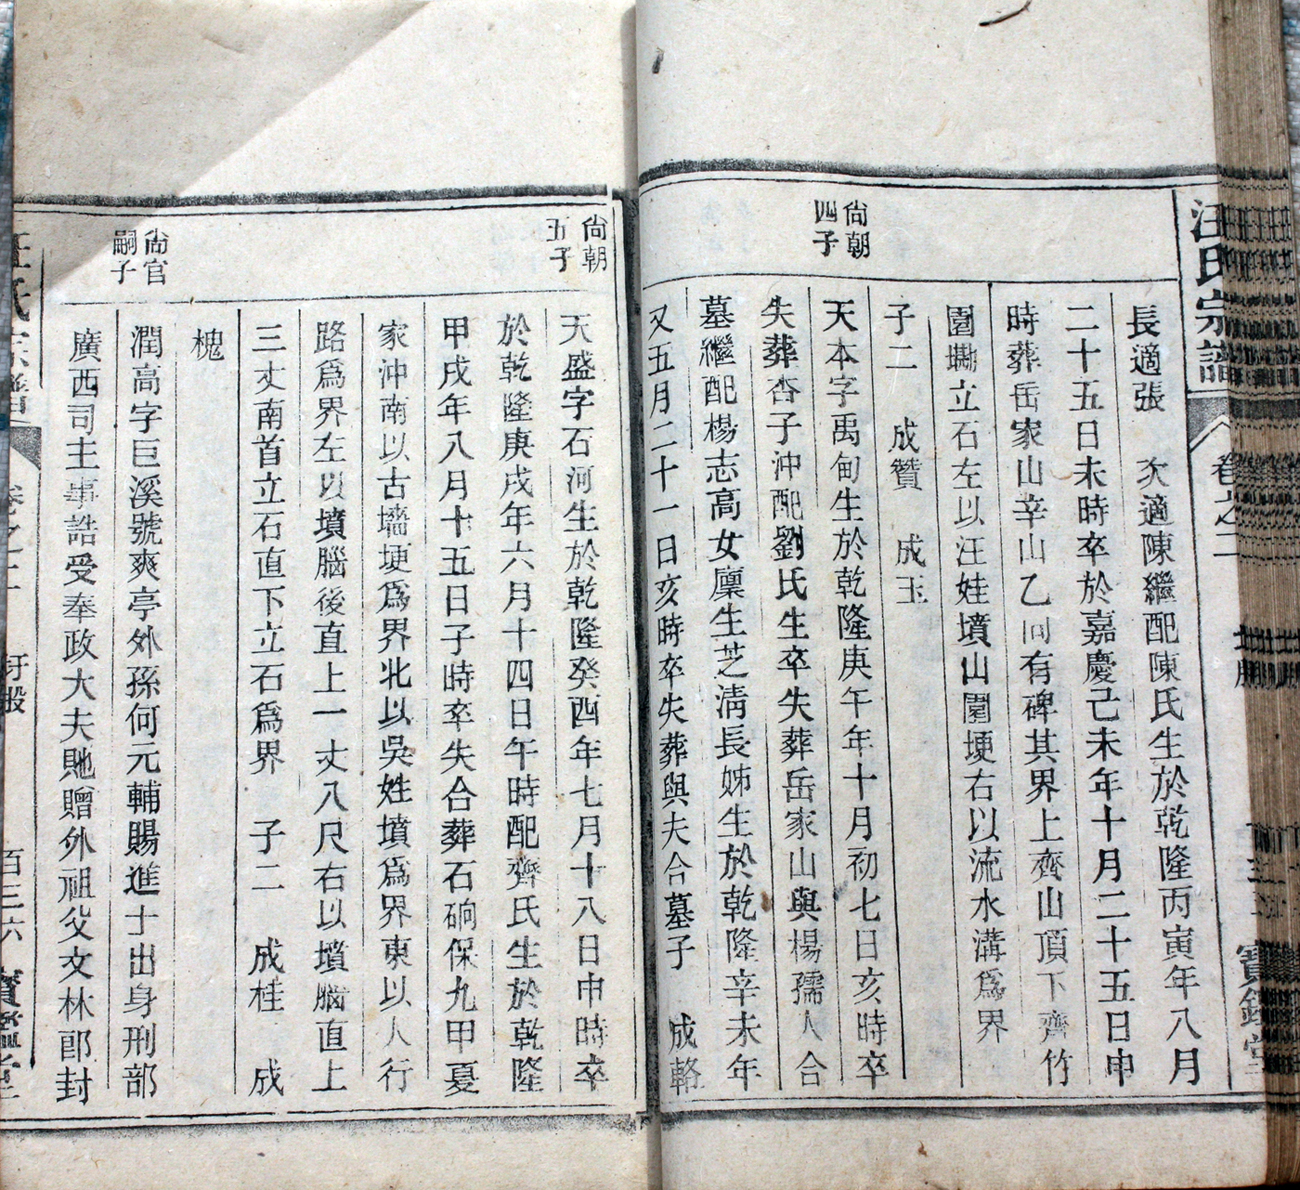 汪氏宗譜
卷之二
寶鑑堂
長適張　次適陳繼配陳氏生於乾隆丙寅年八月
二十五日未時卒於嘉慶己未年十月二十五日申
時葬岳家山辛山乙向有碑其界上齊山頂下齊竹
園塝立石左以汪姓墳山圍埂右以流水溝爲界
子二　成贊　成玉
尙朝
四子
天本字禹甸生於乾隆庚午年十月初七日亥時卒
失葬杏子沖配劉氏生卒失葬岳家山與楊孺人合
墓繼配楊志高女廩生芝淸長姊生於乾隆辛未年
又五月二十一日亥時卒失葬與夫合墓子　成輅
尙朝
五子
天盛字石河生於乾隆癸酉年七月十八日申時卒
於乾隆庚戌年六月十四日午時配齊氏生於乾隆
甲戌年八月十五日子時卒失合葬石硐保九甲夏
家沖南以古墻埂爲界北以吳姓墳爲界東以人行
路爲界左以墳腦後直上一丈八尺右以墳腦直上
三丈南首立石直下立石爲界　子二　成桂　成
槐
尙官
嗣子
潤高字巨溪號爽亭外孫何元輔賜進士出身刑部
廣西司主事誥受奉政大夫貤贈外祖父文林郎封
汪氏宗譜
卷之二
百三六
寶鑑堂